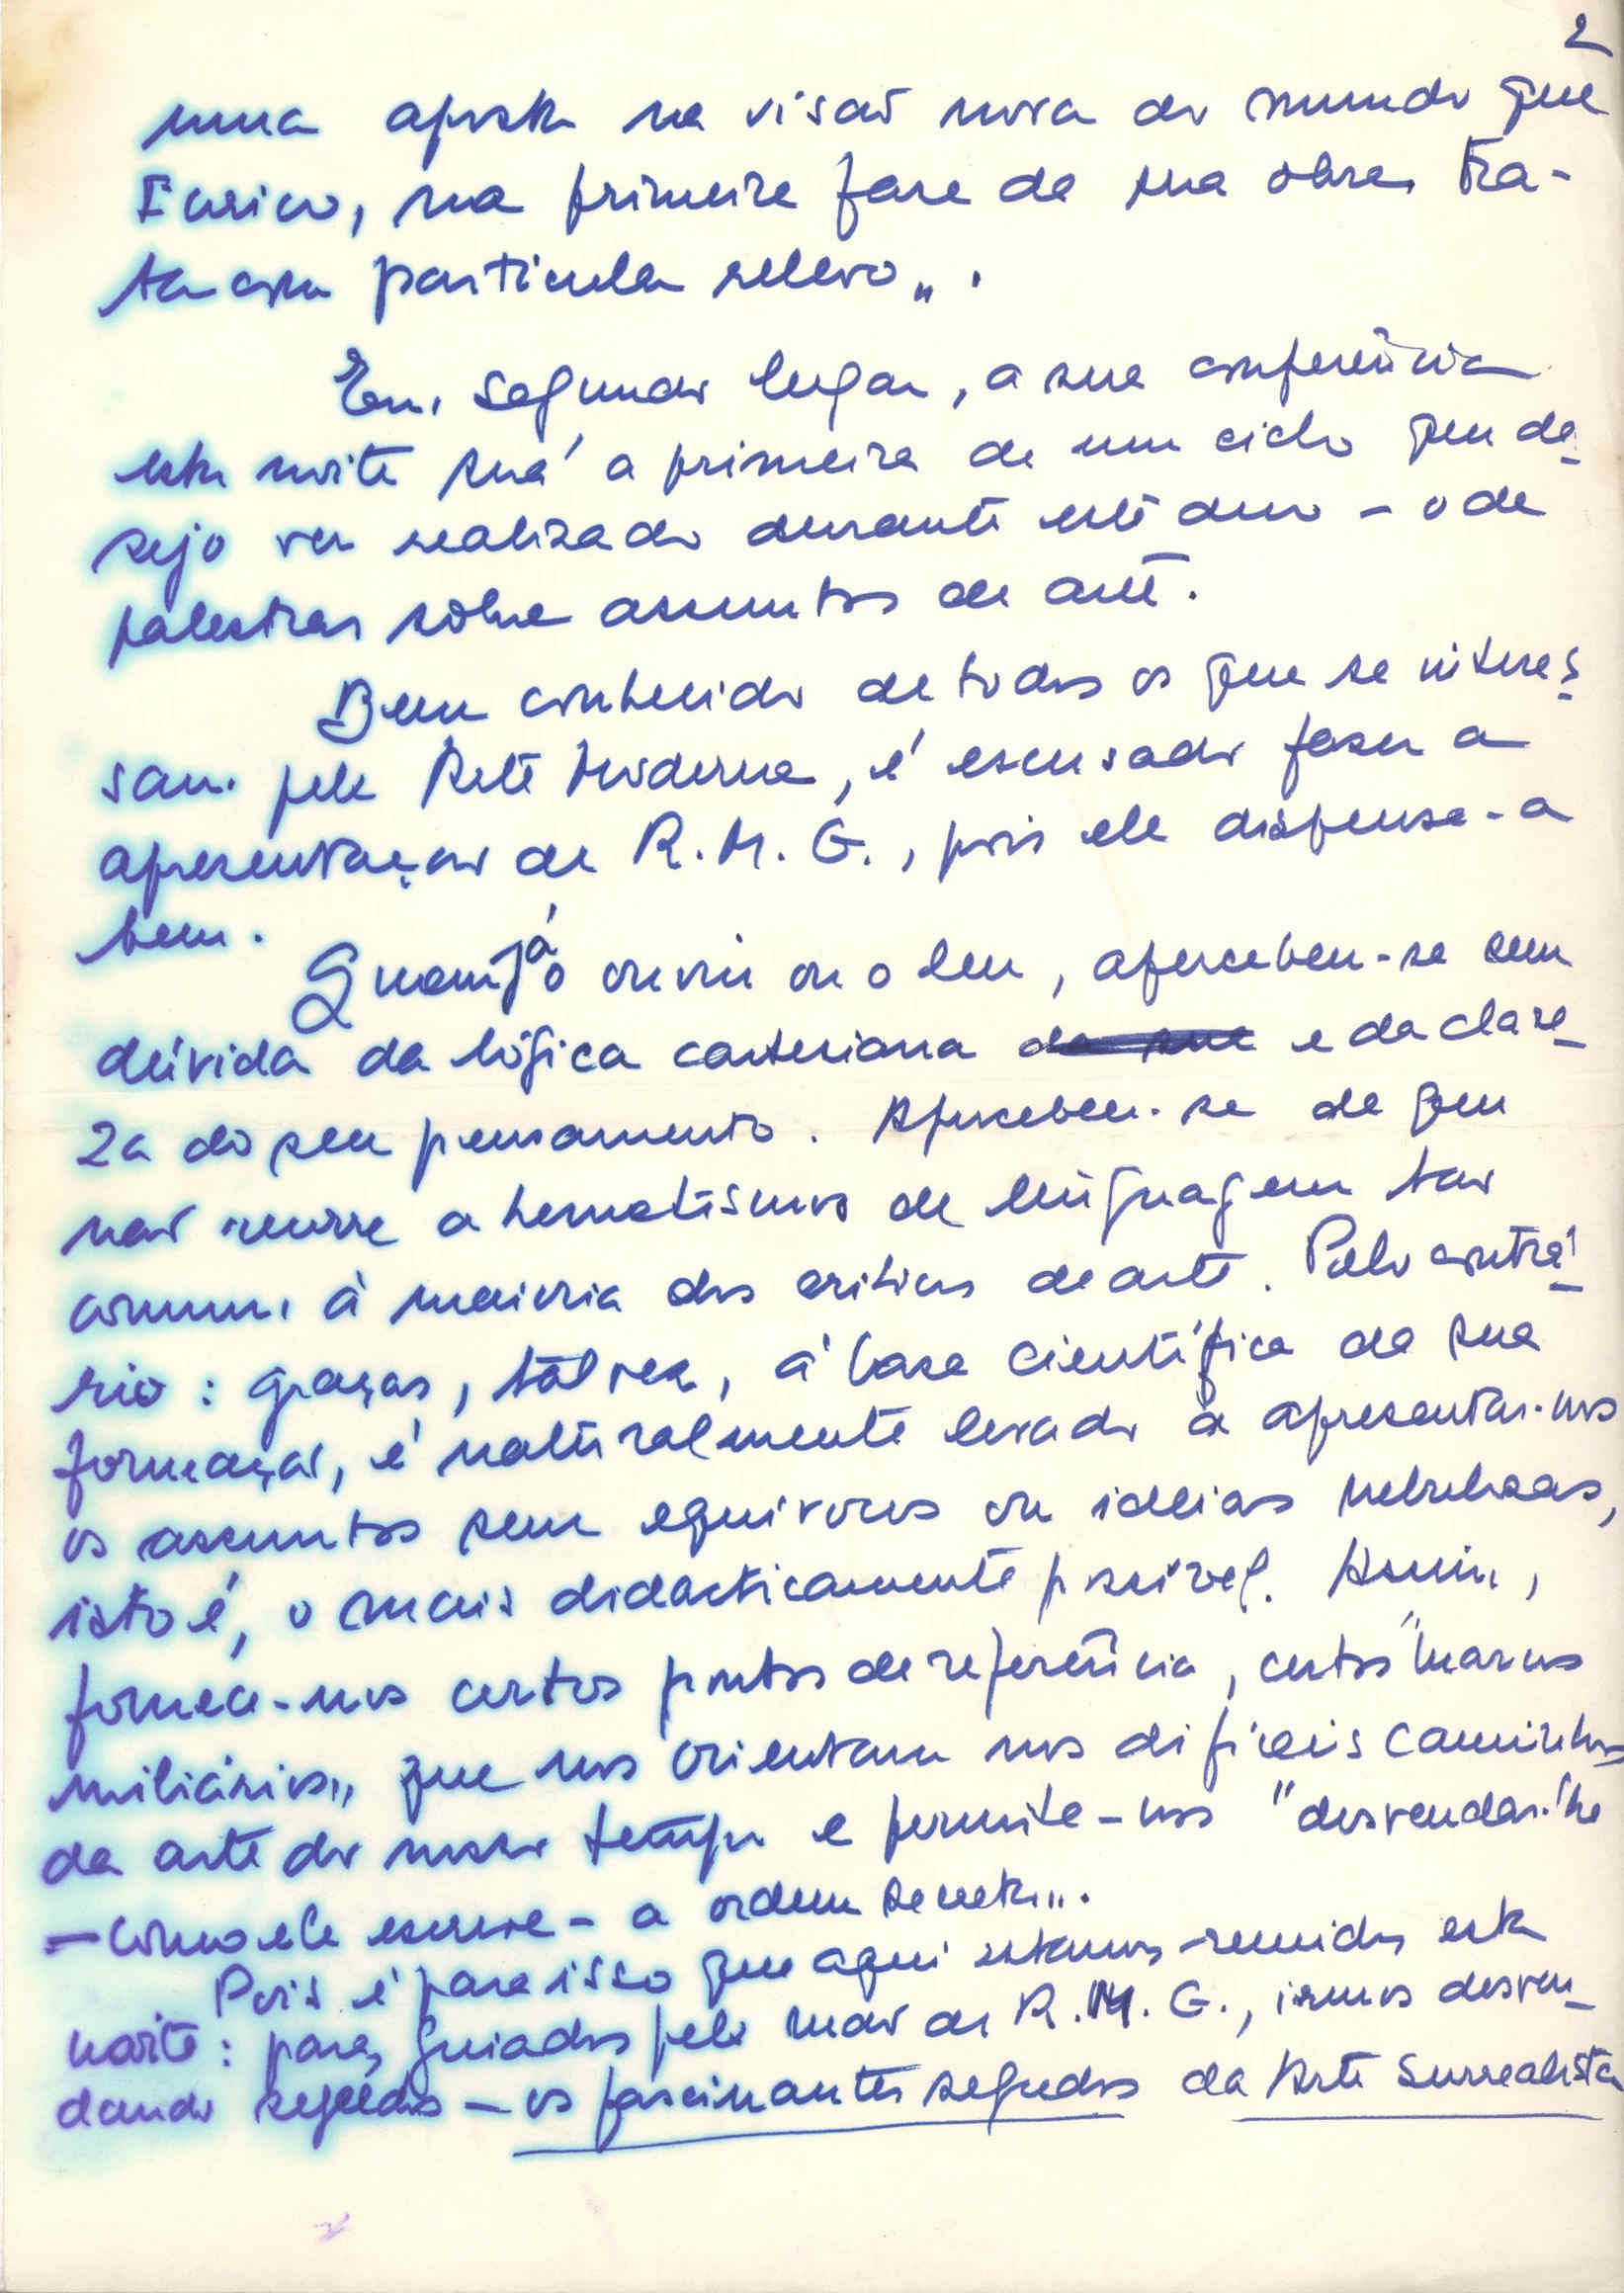 2
numa aposta na visão nova do mundo que
Eurico, na primeira fase da sua obra, tra-
ta com particular relevo„.
Em segundo lugar, a sua conferência
esta noite será a primeira de um ciclo que de-
sejo ver realizado durante este ano – o de
palestras sôbre assuntos de arte.
Bem conhecido de todos os que se interes-
sam pela Arte Moderna, é escusado fazer a
apresentação de R. M. G., pois ele dispensa-a
bem.
Quem já o ouviu ou o leu, apercebeu-se sem
dúvida da lógica cartesiana da sua e da clare-
za do seu pensamento. Apercebeu-se de que
não recorre a hermetismos de linguagem tão
comum à maioria dos críticos de arte. Pelo contrá-
rio: graças, talvez, à base científica da sua
formação, é naturalmente levado a apresentar-nos
os assuntos sem equívocos ou ideias nebulosas,
isto é, o mais didacticamente possível. Assim,
fornece-nos certos pontos de referência, certos "marcos
miliários„ que nos orientam nos difíceis caminhos
da arte do nosso tempo e permite-nos "desvendar-lhe
– como ele escreve – a ordem secreta„.
Pois é para isso que aqui estamos reunidos esta
noite: para, guiados pela mão de R. M. G., irmos desven-
dando segredos – os fascinantes segredos da Arte Surrealista